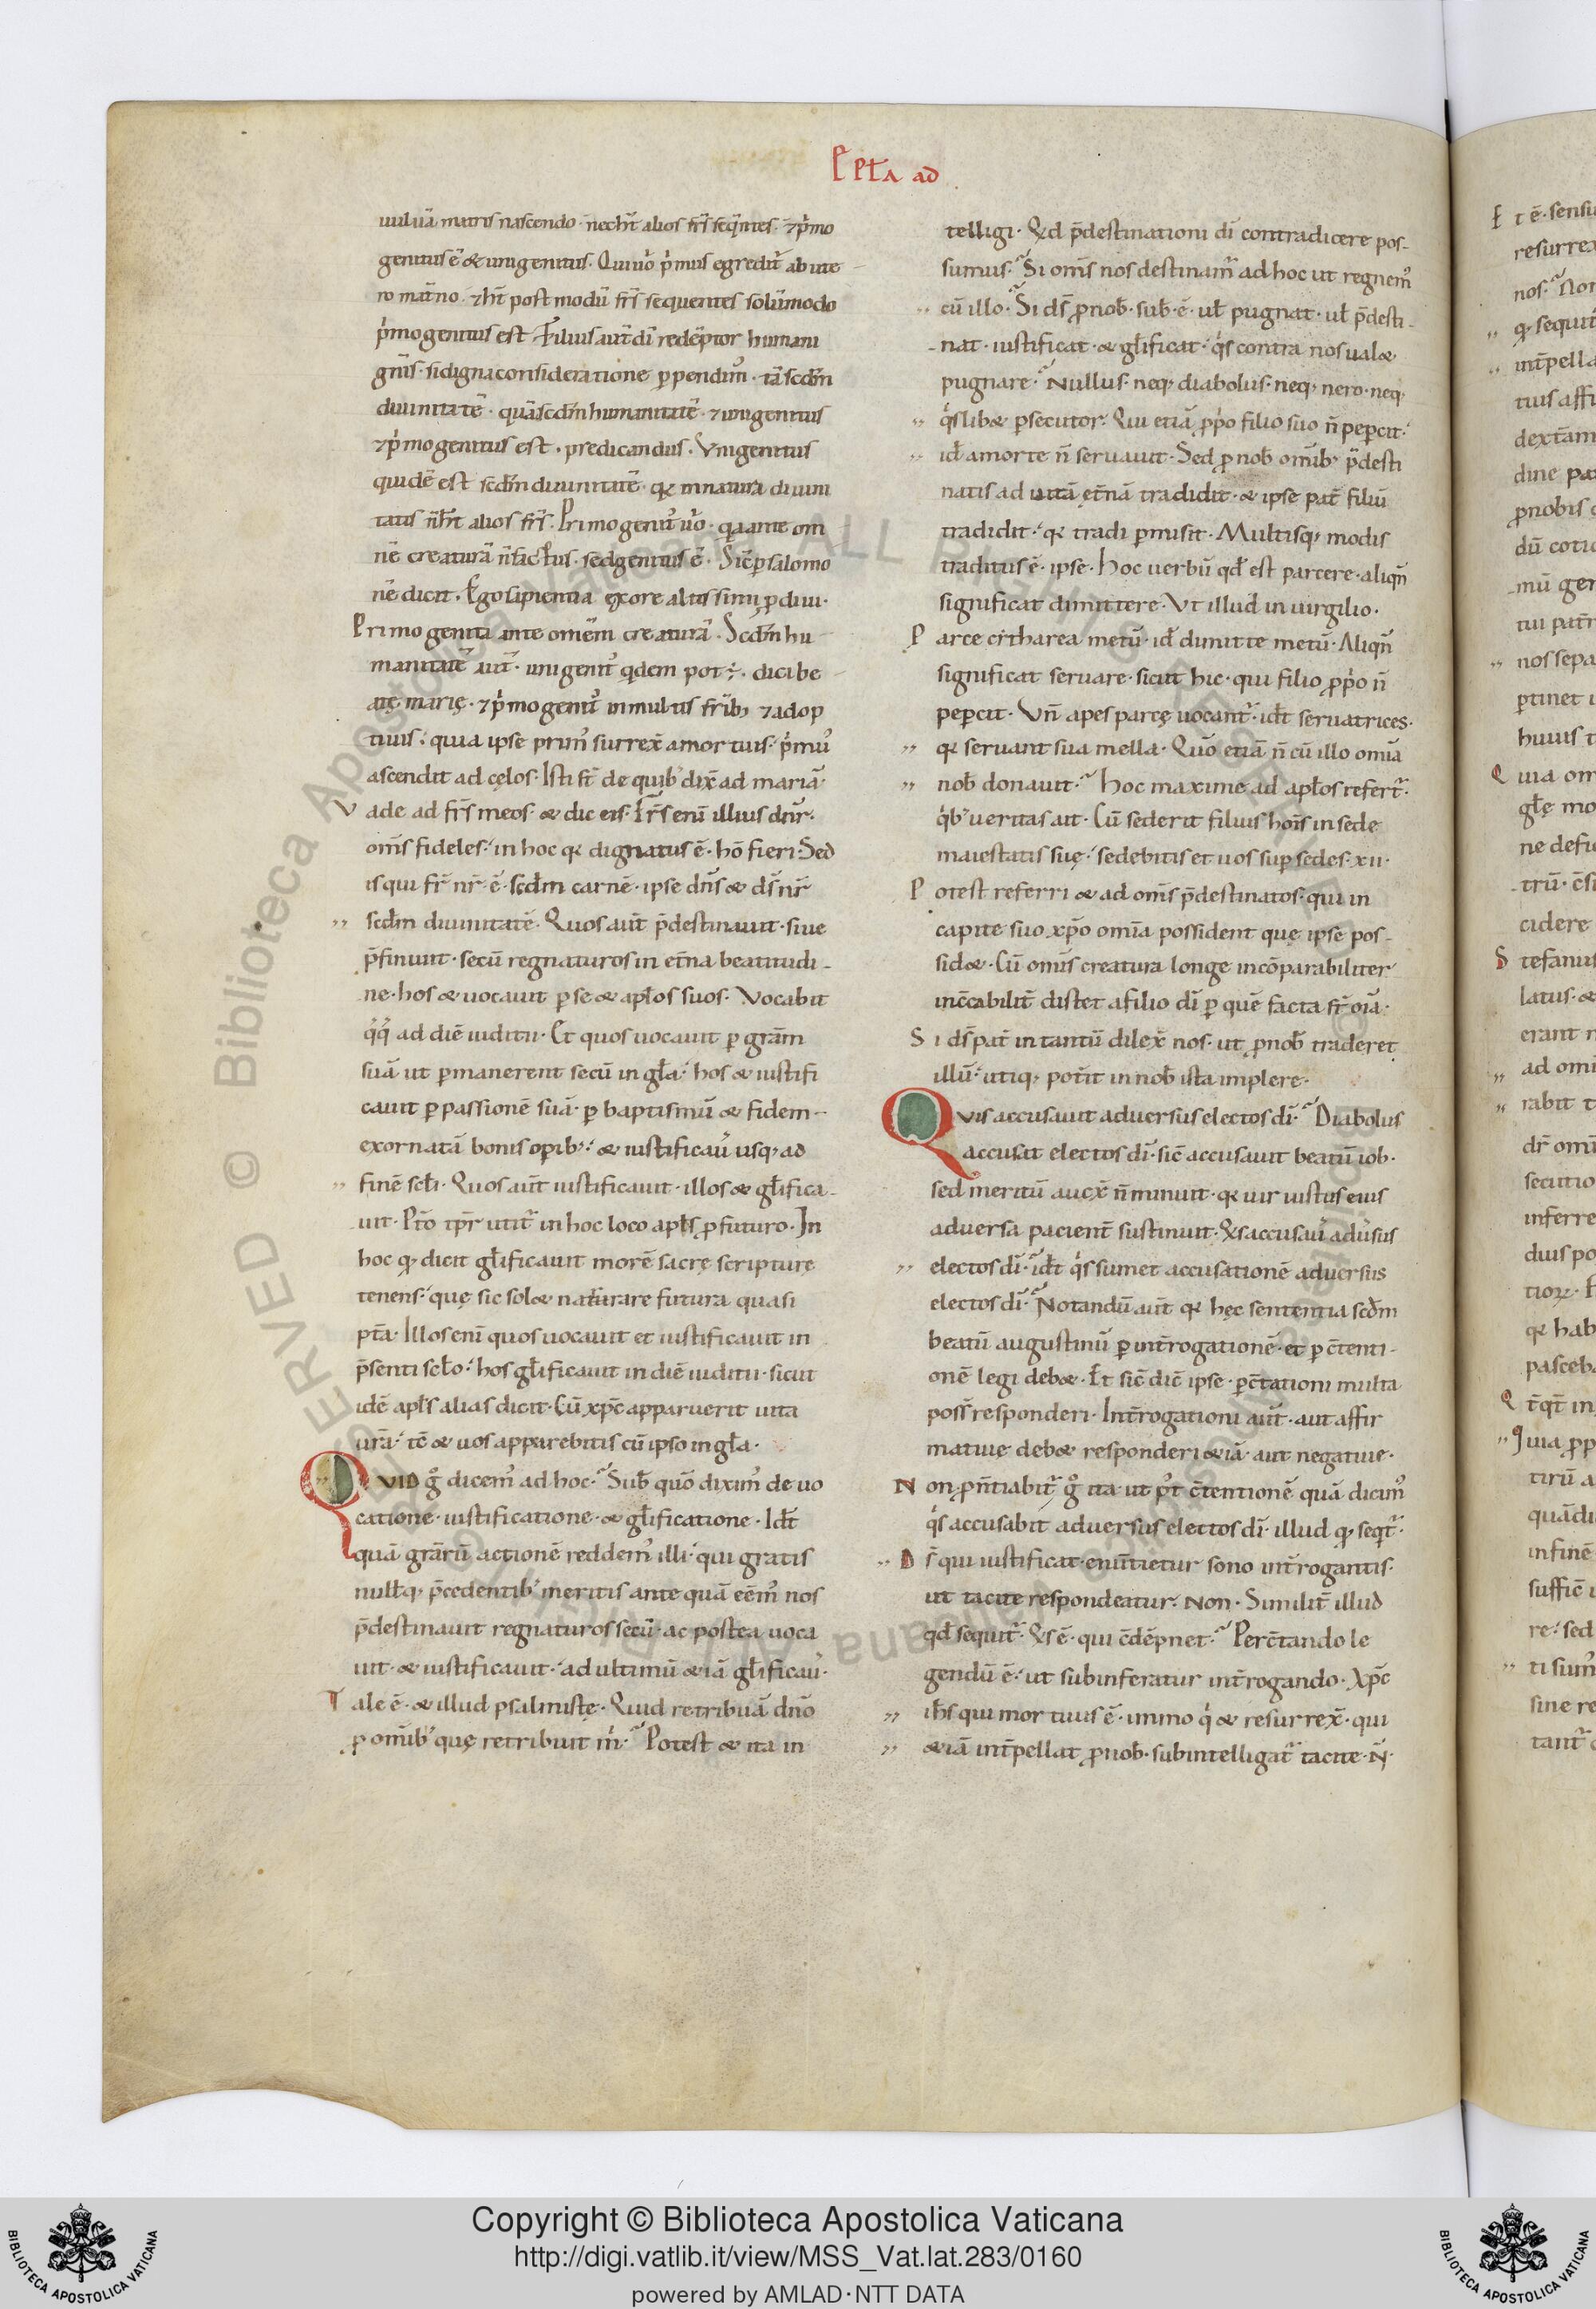 P PTA ad
uuluā matris nascendo · nec hn̄t alios frs̄ seq̄ntes · ⁊ p̍mo
genitus ē & unigenitus. Qui uo̍ p̍mus egredit̄ ab ute
ro mat̄no · ⁊ hn̄t post modū frs̄ sequentes solūmodo
p̍mogenitus est. Filius aut̄ dī redēptor humani
gn̄is · si digna consideratione ꝑpendim᷒ · tā scd̄m
diuinitatē · quā scd̄m humanitatē · ⁊ unigenitus
⁊ p̍mogenitus est · predicandus. Vnigenitus
quidē est scd̄m diuinitatē · qꝛ in natura diuini
tatis n̄ hn̄t alios frs̄. Primogenit᷒ uo̍ · q̍a ante om
nē creaturā n̄ factus · sed genitus ē. Sic̄ ꝑ salomo
nē dicit. Ego sapientia ex ore altissimi ꝓdiui ·
Primogenita ante omēm creaturā. Scd̄m hu
manitatē aut̄ · unigenit᷒ q̍dem pot ÷ · dici be
atę marię · ⁊ p̍mogenit᷒ in multis frīb; ⁊ adop
tiuis · quia ipse prim᷒ surrex̄ a mortuis · p̍mu᷒
ascendit ad cęlos. Isti st̄ de quib᷒ dix̄ ad mariā ·
Vade ad frs̄ meos · & dic eis. Frs̄ enī illius dn̄r ·
oms̄ fideles · in hoc qꝛ dignatus ē · hō fieri. Sed
is qui fr̄ nr̄ · ē · scd̄m carnē · ipse dn̄s & ds̄ nr̄
,, scd̄m diuinitatē. Quos aut̄ p̄destinauit · siue
p̄finiuit · secū regnaturos in et̄na beatitudi-
ne · hos & uocauit ꝑ se & apl̄os suos. Vocabit
q̍q̍ ad diē iudicii. Et quos uocauit ꝑ grām
suā ut ꝑmanerent secū in gl̄a · hos & iustifi
cauit ꝑ passionē suā · ꝑ baptismū & fidem
exornatā bonis opib᷒ · & iustificau᷒ usq; ad
,, finē scl̄i. Quos aut̄ iustificauit · illos & gl̄ifica-
uit. Pt̄o tp̄r utit᷒ in hoc loco apl̄s ꝓ futuro. In
hoc qꝛ dicit gl̄ificauit morē sacrę scripturę
tenens · quę sic sol& narrare futura quasi
pt̄a. Illos enī quos uocauit et iustificauit in
p̄senti scl̄o · hos gl̄ificauit in diē iudicii · sicut
idē apl̄s alias dicit. Cū xp̄c apparuerit uita
urā · tc̄ & uos apparebitis cū ipso in gl̄a ·
,, QVID g̊ dicem᷒ ad hoc · Sub̄ quō dixim᷒ de uo
catione · iustificatione · & gl̄ificatione. Id ē
quā grārū actionē reddem᷒ illi · qui gratis
null̄q; p̄cedentib᷒ meritis ante quā eēm᷒ nos
p̄destinauit regnaturos secū · ac postea uoca
uit · & iustificauit · ad ultimū &iā gl̄ificau᷒ ·
Tale ē · & illud psalmistę. Quid retribuā dn̄o
ꝓ omīb᷒ quę retribuit m̍ · Potest & ita in
telligi. Qd̄ p̄destinationi dī contradicere pos-
sumus · Si oms̄ nos destinar̄ ad hoc ut regnem᷒
,, cū illo · Si ds̄ ꝓ nob̄ · sub̄ · ē · ul̄ pugnat · ul̄ p̄desti-
nat · iustificat · & gl̄ificat · q̍s contra nos ual&
pugnare · Nullus · neq; diabolus · neq; nero · neq;
,, q̍slib& ꝑsecutor. Qui etiā ꝓp̍o filio suo n̄ peꝑcit ·
,, id ē a morte n̄ seruauit. Sed ꝓ nob̄ omīb᷒ p̄desti
natis ad uitā et̄nā tradidit · & ipse pat̄ filiū
tradidit · qꝛ tradi ꝑmisit. Multisq; modis
traditus ē · ipse. Hoc uerbū qd̄ est parcere · aliqn̄
significat dimittere. Vt illud in uirgilio.
Parce citharea metū · id ē dimitte metū. Aliqn̄
significat seruare · sicut hic · qui filio ꝓp̍o n̄
peꝑcit. Vn̄ apes parcę uocant᷒ · id ē seruatrices.
,, qꝛ seruant sua mella. Quō etiā n̄ cū illo omīa
,, nob̄ donauit · Hoc maxime ad apl̄os refert᷒ ·
q̍b᷒ ueritas ait. Cū sederit filius hoīs in sede
maiestatis suę · sedebitis et uos suꝑ sedes · xii ·
Potest referri & ad oms̄ p̄destinatos · qui in
capite suo xp̄o omīa possident quę ipse pos-
sid&. Cū omīs creatura longe incōparabiliter
inēcabilit̄ distet a filio dī ꝑ quē facta st̄ oīa ·
Si ds̄ pat̄ in tantū dilex̄ nos · ut ꝓ nob̄ traderet
illū · utiq; pot̄it in nob̄ ista implere.
Qvis accusauit aduersus electos dī · Diabolus
accusat electos dī · sic̄ accusauit beatū iob ·
sed meritū auex̄ n̄ minuit · qꝛ uir iustus eius
aduersa pacient̄ sustinuit. Qs accusau᷒ adu᷒sus
,, electos dī · id ē q̍s sumet accusationē aduersus
electos dī · Notandū aut̄ qꝛ hęc sententia scd̄m
beatū augustinū ꝑ int̄rogationē · et ꝑc̄tenti-
onē legi deb&. Et sic̄ dic̄ ipse · ꝑc̄tationi multa
poss̄ responderi. Int̄rogationi aut̄ · aut affir
matiuę deb& responderi &iā · aut negatiue ·
Non ꝓn̄tiabit᷒ g̊ ita · ut p̍t c̄tentionē quā dicim᷒
q̍s accusabit aduersus electos dī · illud qꝛ seqt᷒ ·
,, Ds̄ qui iustificat · enūtietur sono int̄rogantis ·
ut tacite respondeatur. Non. Similit̄ illud
qd̄ sequit᷒ · Qs ē · qui c̄dēpnet · Perc̄tando le
gendū ē · ut subinferatur int̄rogando · Xp̄c
,, ih̄s qui mortuus ē · immo q̍ & resurrex̄ · qui
,, &iā int̄pellat ꝓ nob̄ · subintelligat᷒ tacite · N̄ ·
Copyright © Biblioteca Apostolica Vaticana
http://digi.vatlib.it/view/MSS_Vat.lat.283/0160
powered by AMLAD·NTT DATA